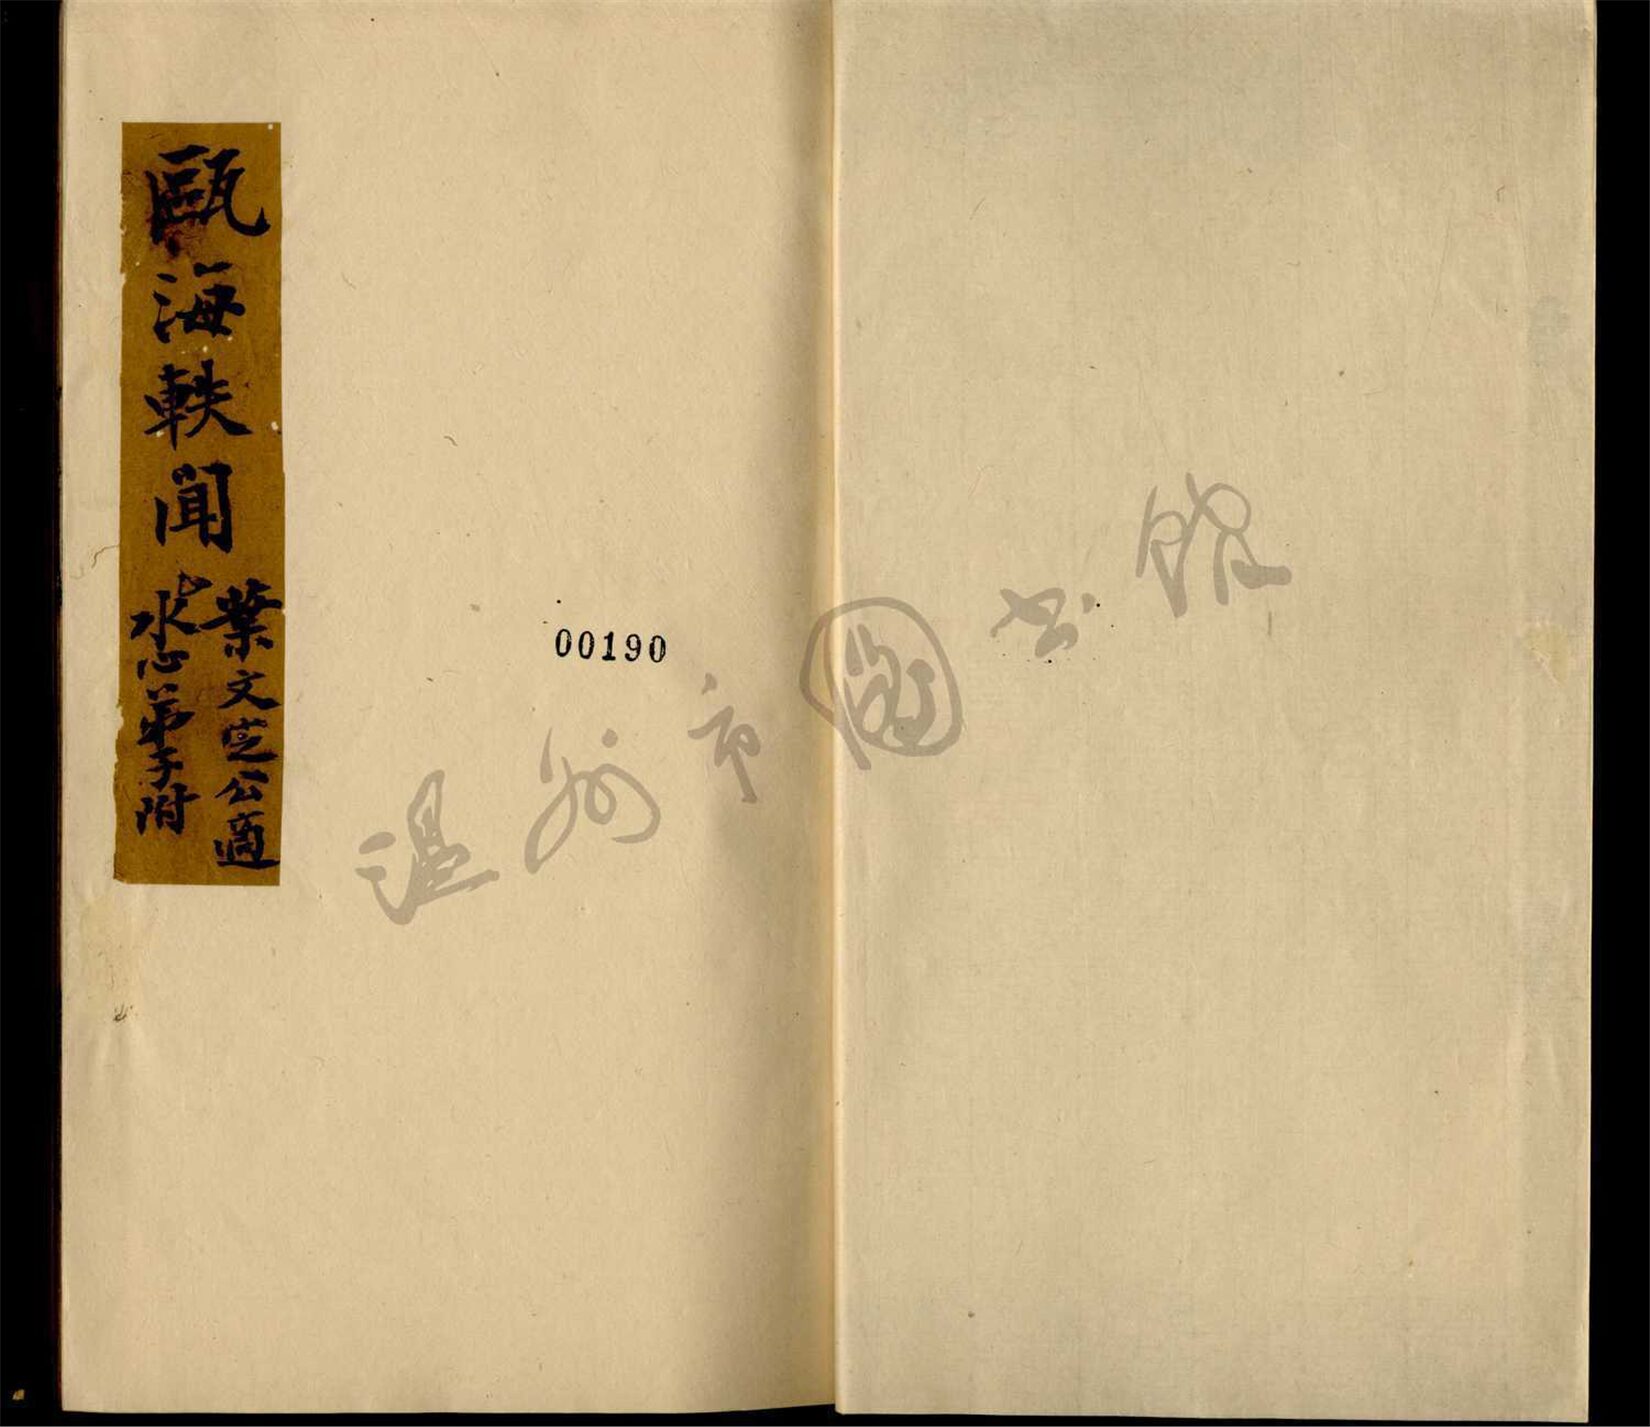 甌海軼聞
葉文定公適
水心弟子附
00190
温州市圖书馆